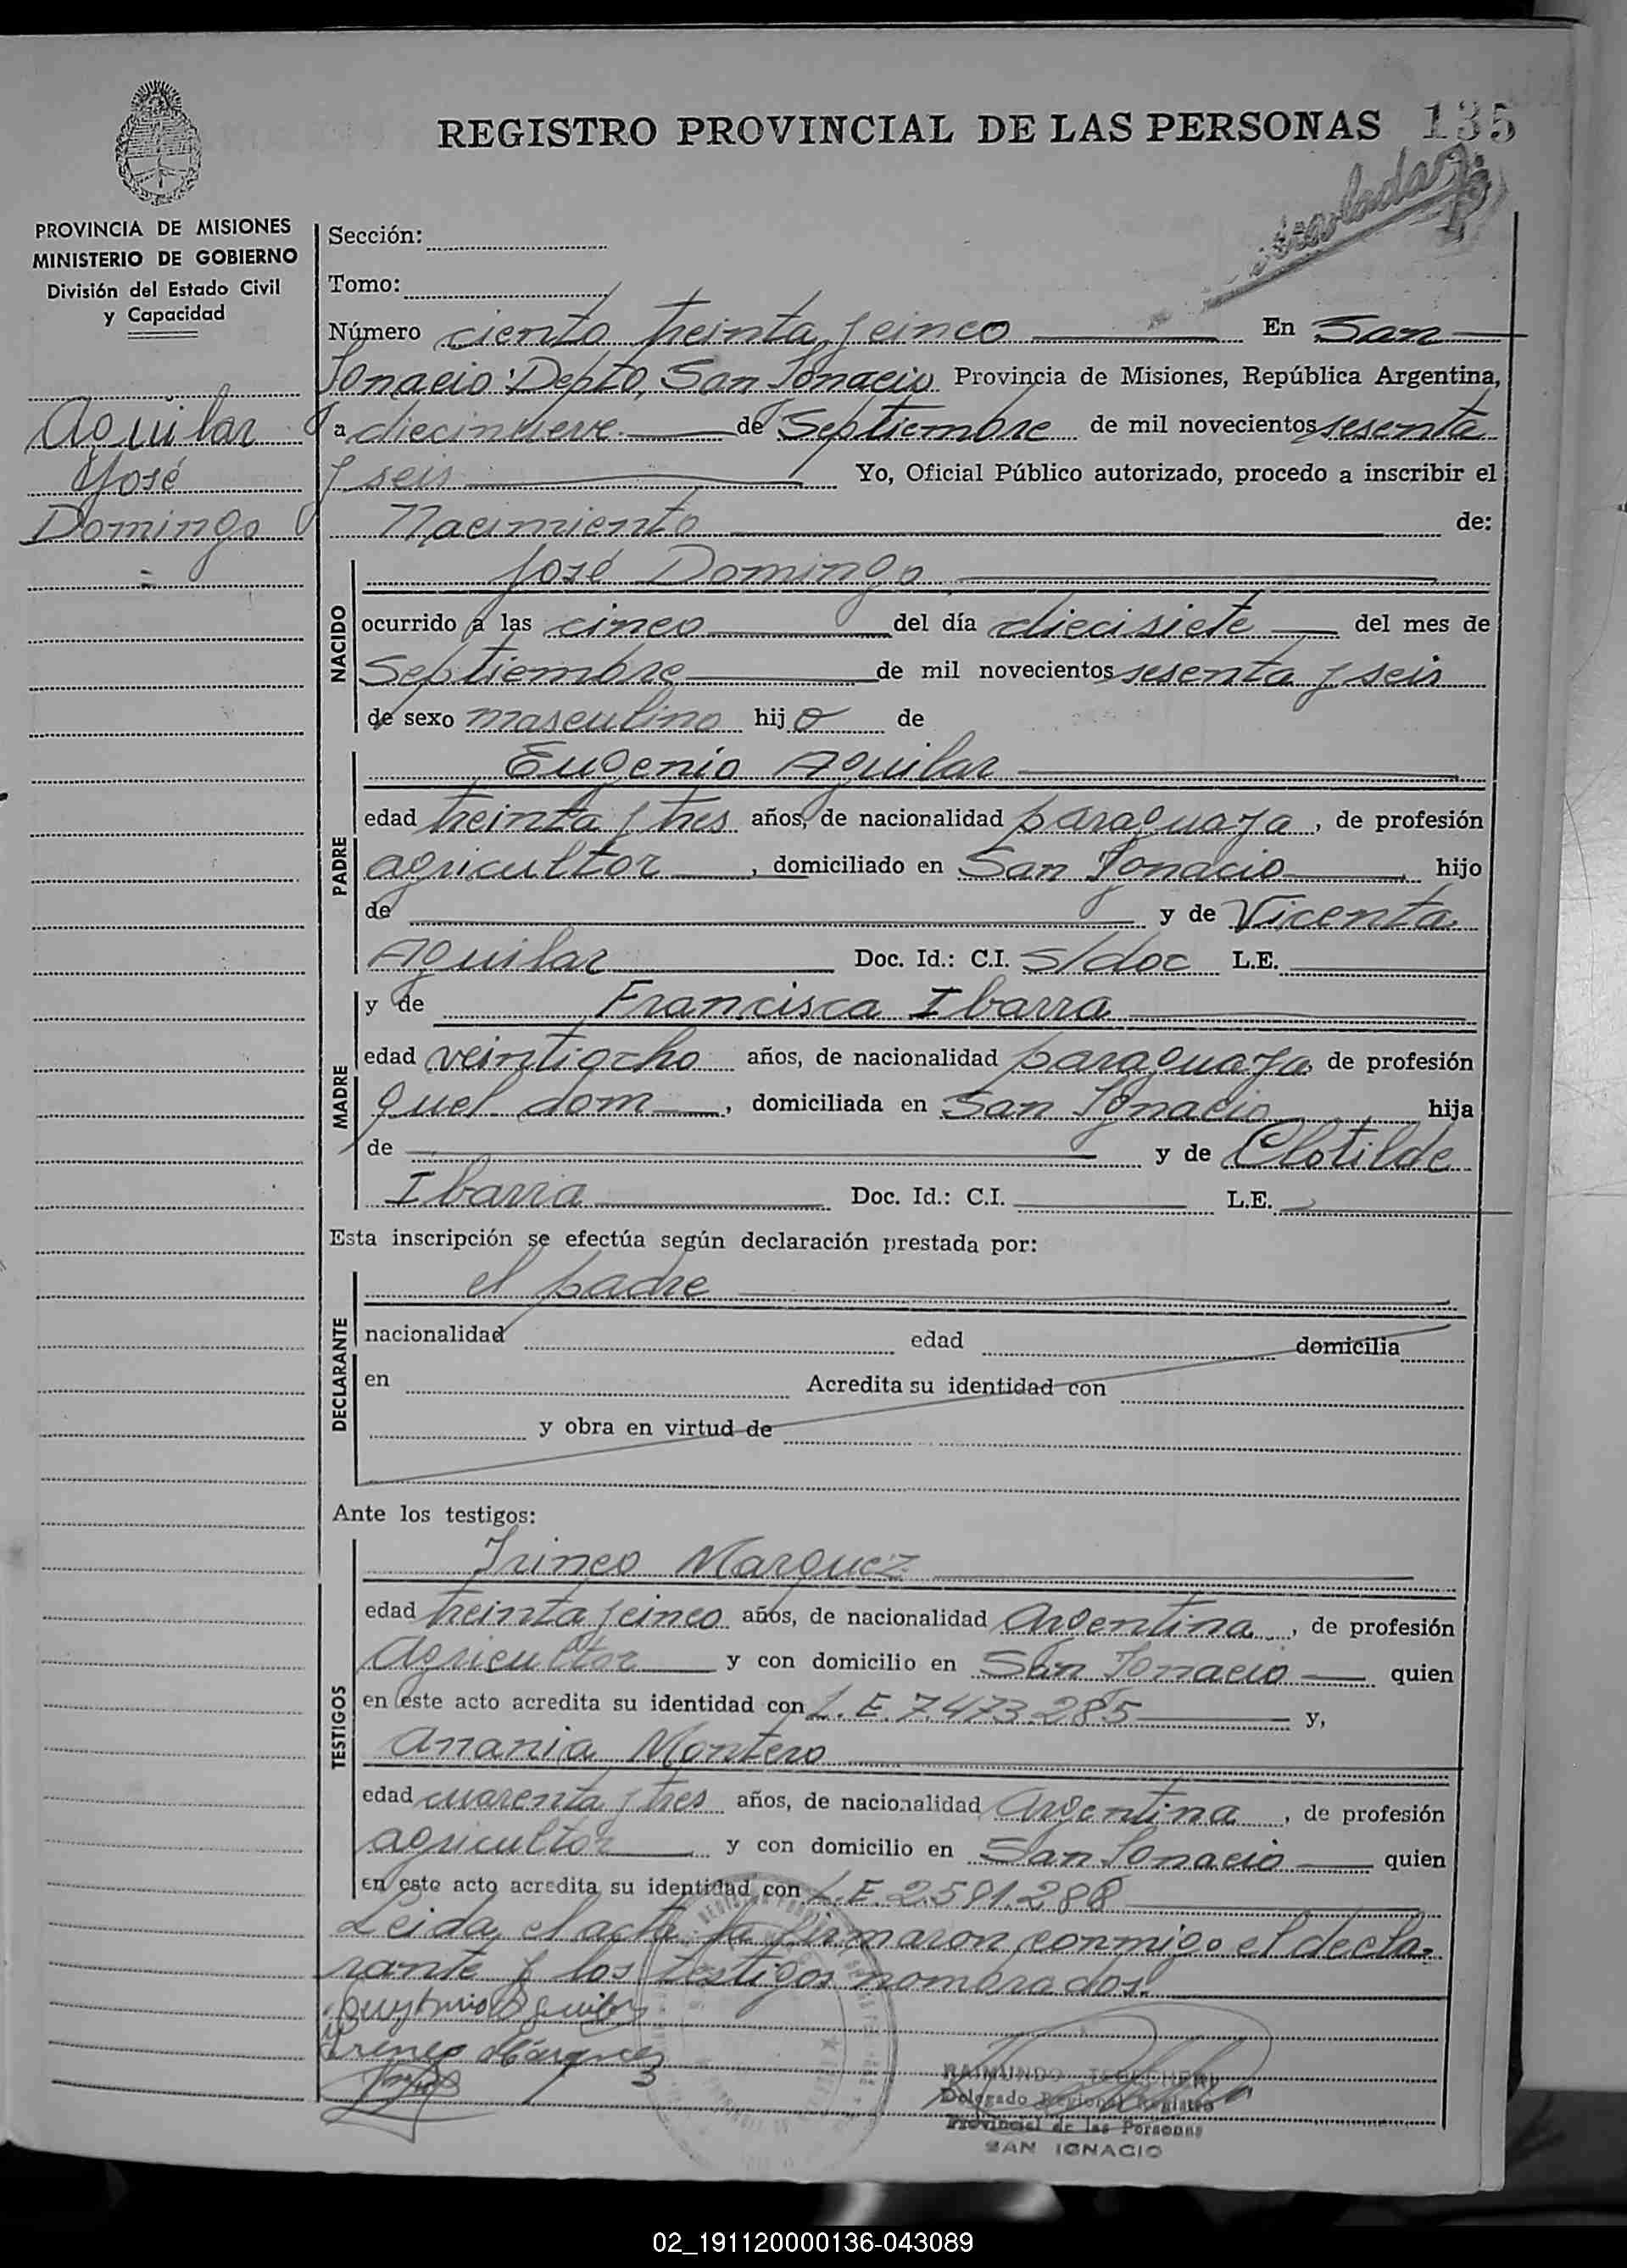 REGISTRO PROVINCIAL DE LAS PERSONAS 135
PROVINCIA DE MISIONES
MINISTERIO DE GOBIERNO
División del Estado Civil
y Capacidad
Aguilar
José
Domingo
Sección:
Tomo:
Número ciento treinta y cinco En San
Ignacio Depto, San Ignacio Provincia de Misiones, República Argentina,
a diecinueve de Septiembre de mil novecientos sesenta
y seis Yo, Oficial Público autorizado, procedo a inscribir el
Nacimiento de:
NACIDO
José Domingo
ocurrido a las cinco del día diecisiete del mes de
Septiembre de mil novecientos sesenta y seis
de sexo masculino hijo de
PADRE
Eugenio Aguilar
edad treinta y tres años, de nacionalidad paraguaya, de profesión
agricultor, domiciliado en San Ignacio hijo
de y de Vicenta
Aguilar Doc. Id.: C.I. S/doc L.E.
MADRE
y de Francisca Ibarra
edad veintiocho años, de nacionalidad paraguaya de profesión
quel. dom, domiciliada en San Ignacio hija
de y de Clotilde
Ibarra Doc. Id.: C.I. L.E.
Esta inscripción se efectúa según declaración prestada por:
DECLARANTE
el padre
nacionalidad edad domicilia
en Acredita su identidad con
y obra en virtud de
Ante los testigos:
TESTIGOS
Irineo Marquez
edad treinta y cinco años, de nacionalidad Argentina, de profesión
Agricultor y con domicilio en San Ignacio quien
en este acto acredita su identidad con L.E. 7.473.285 y,
Anania Montero
edad cuarenta y tres años, de nacionalidad Argentina, de profesión
agricultor y con domicilio en San Ignacio quien
en este acto acredita su identidad con L.E. 2.591.288
Leida el acta la firmaron conmigo el decla-
rante y los testigos nombrados.
Aguilar
Irineo Márquez
RAIMUNDO
Delegado Regional Registro
Provincial de las Personas
SAN IGNACIO
02_191120000136-043089